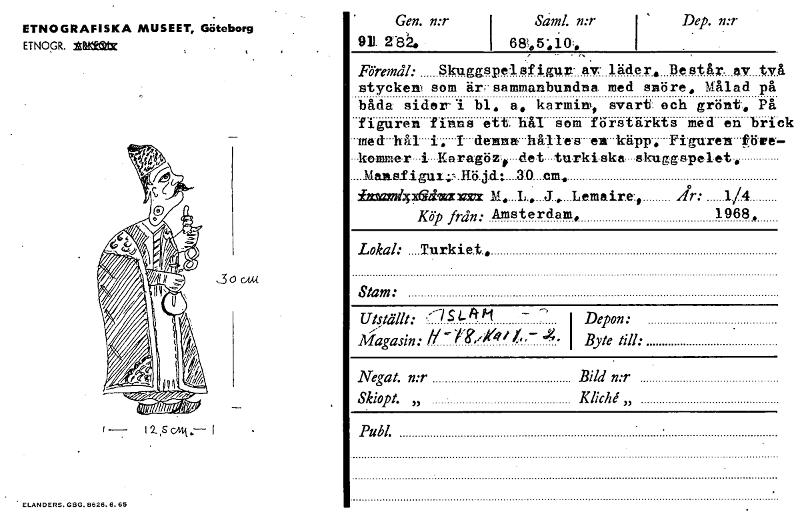 ETNOGRAFISKA MUSEET, Göteborg
ETNOGR.
30 cm
12,5 cm.
ELANDERS. GBG. 8626. 6. 65
Gen. n:r Saml. n:r Dep. n:r
91 282. 68.5.10.
Föremål: Skuggspelsfigur av läder. Består av två
stycken som är sammanbundna med snöre. Målad på
båda sidor i bl. a. karmin, svart och grönt. På
figuren finns ett hål som förstärkts med en brick
med hål i. I denna hålles en käpp. Figuren före-
kommer i Karagöz, det turkiska skuggspelet.
Mansfigur. Höjd: 30 cm.
M. L. J. Lemaire, År: 1/4
Köp från: Amsterdam. 1968.
Lokal: Turkiet.
Stam:
Utställt: ISLAM Depon:
Magasin: H-78. Kart. - 2. Byte till:
Negat. n:r Bild n:r
Skiopt. „ Kliché „
Publ.